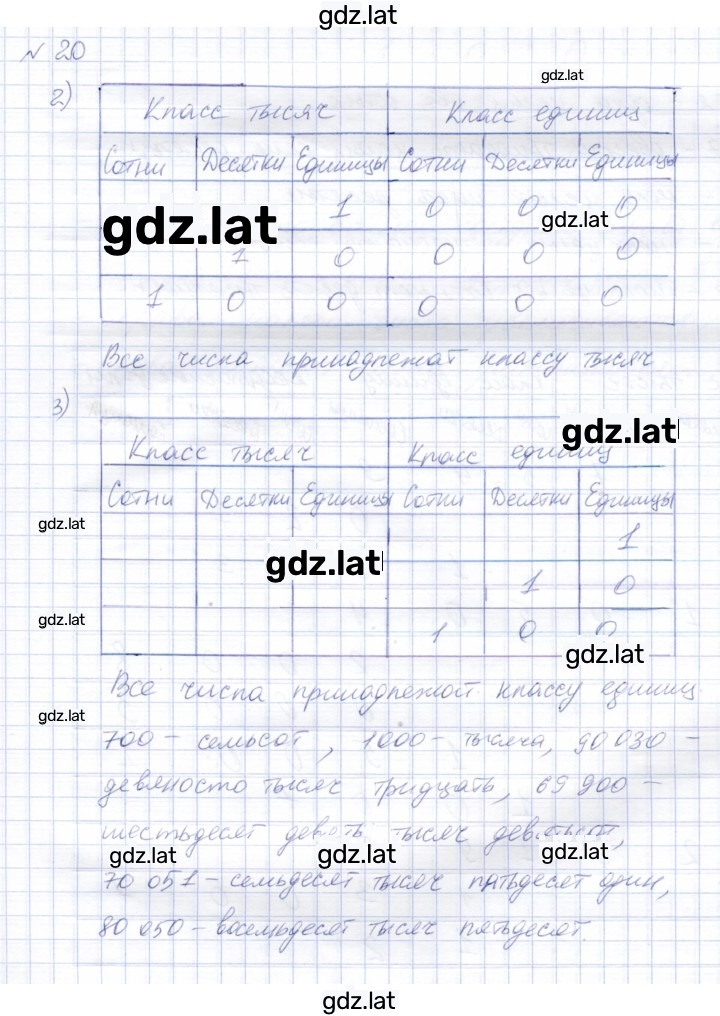 gdz.lat
№ 20
gdz.lat
2)
Класс тысяч Класс единиц
Сотни Десятки Единицы Сотни Десятки Единицы
1 0 0 0
gdz.lat gdz.lat
1 0 0 0 0
1 0 0 0 0 0
Все числа принадлежат классу тысяч
3)
gdz.lat
Класс тысяч Класс единиц
Сотни Десятки Единицы Сотни Десятки Единицы
gdz.lat
1
gdz.lat
1 0
gdz.lat
1 0 0
gdz.lat
Все числа принадлежат классу единиц
gdz.lat
700 – семьсот, 1000 – тысяча, 90 030 –
девяносто тысяч тридцать, 69 900 –
шестьдесят девять тысяч девятьсот,
gdz.lat gdz.lat gdz.lat
70 051 – семьдесят тысяч пятьдесят один,
80 050 – восемьдесят тысяч пятьдесят.
gdz.lat